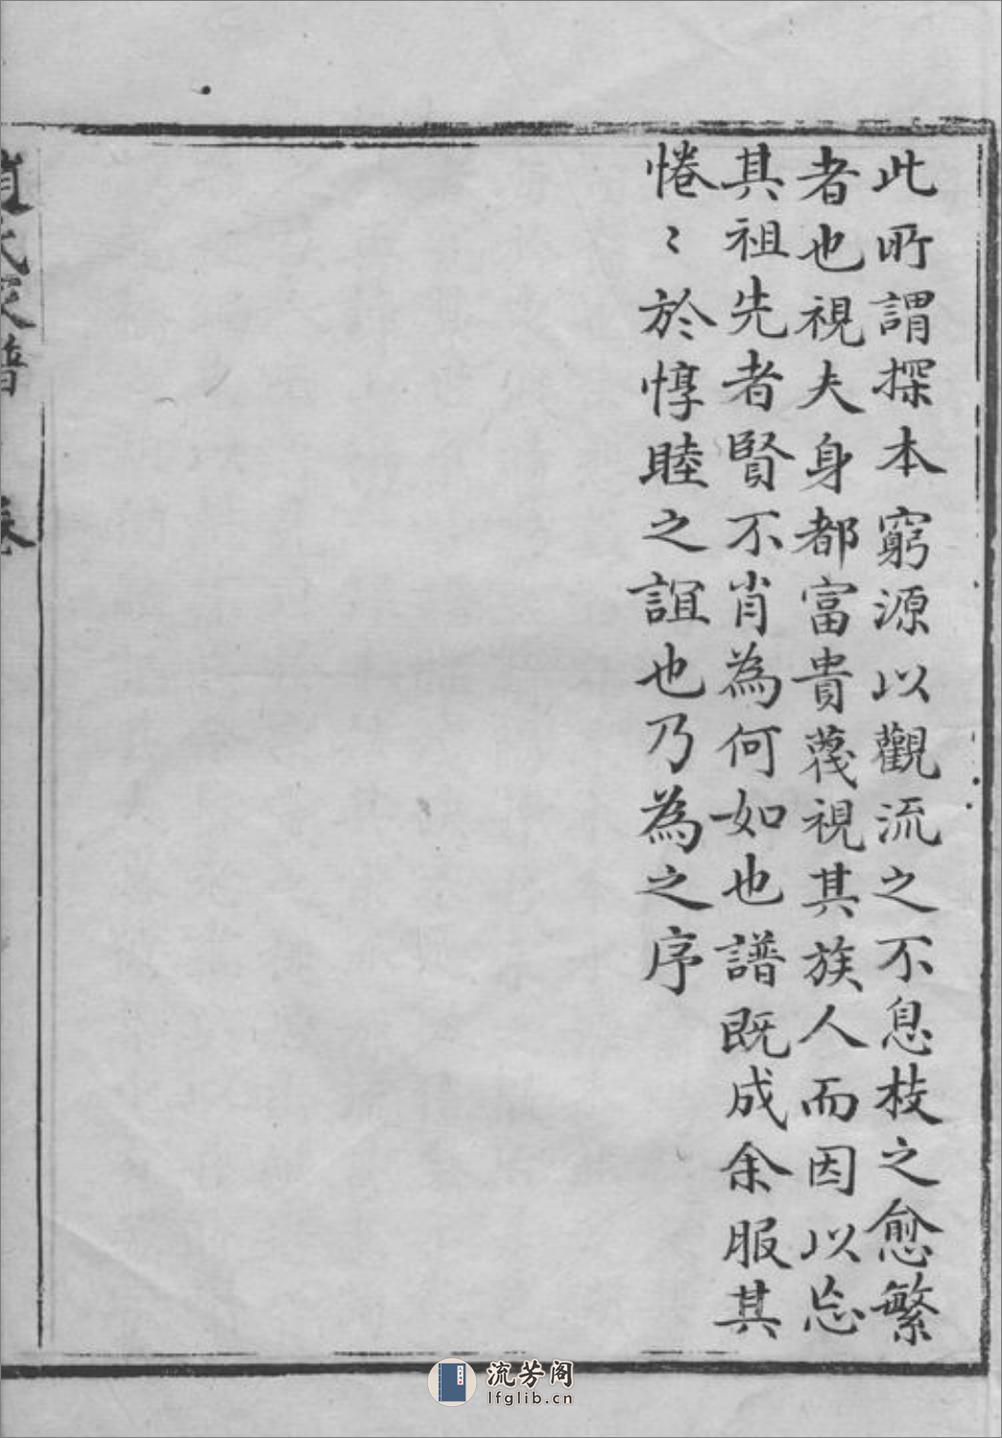 此所謂探本窮源以觀流之不息枝之愈繁
者也視夫身都富貴蔑視其族人而因以忘
其祖先者賢不肖為何如也譜既成余服其
惓〻於惇睦之誼也乃為之序
氏家譜
卷
流芳阁
lfglib.cn